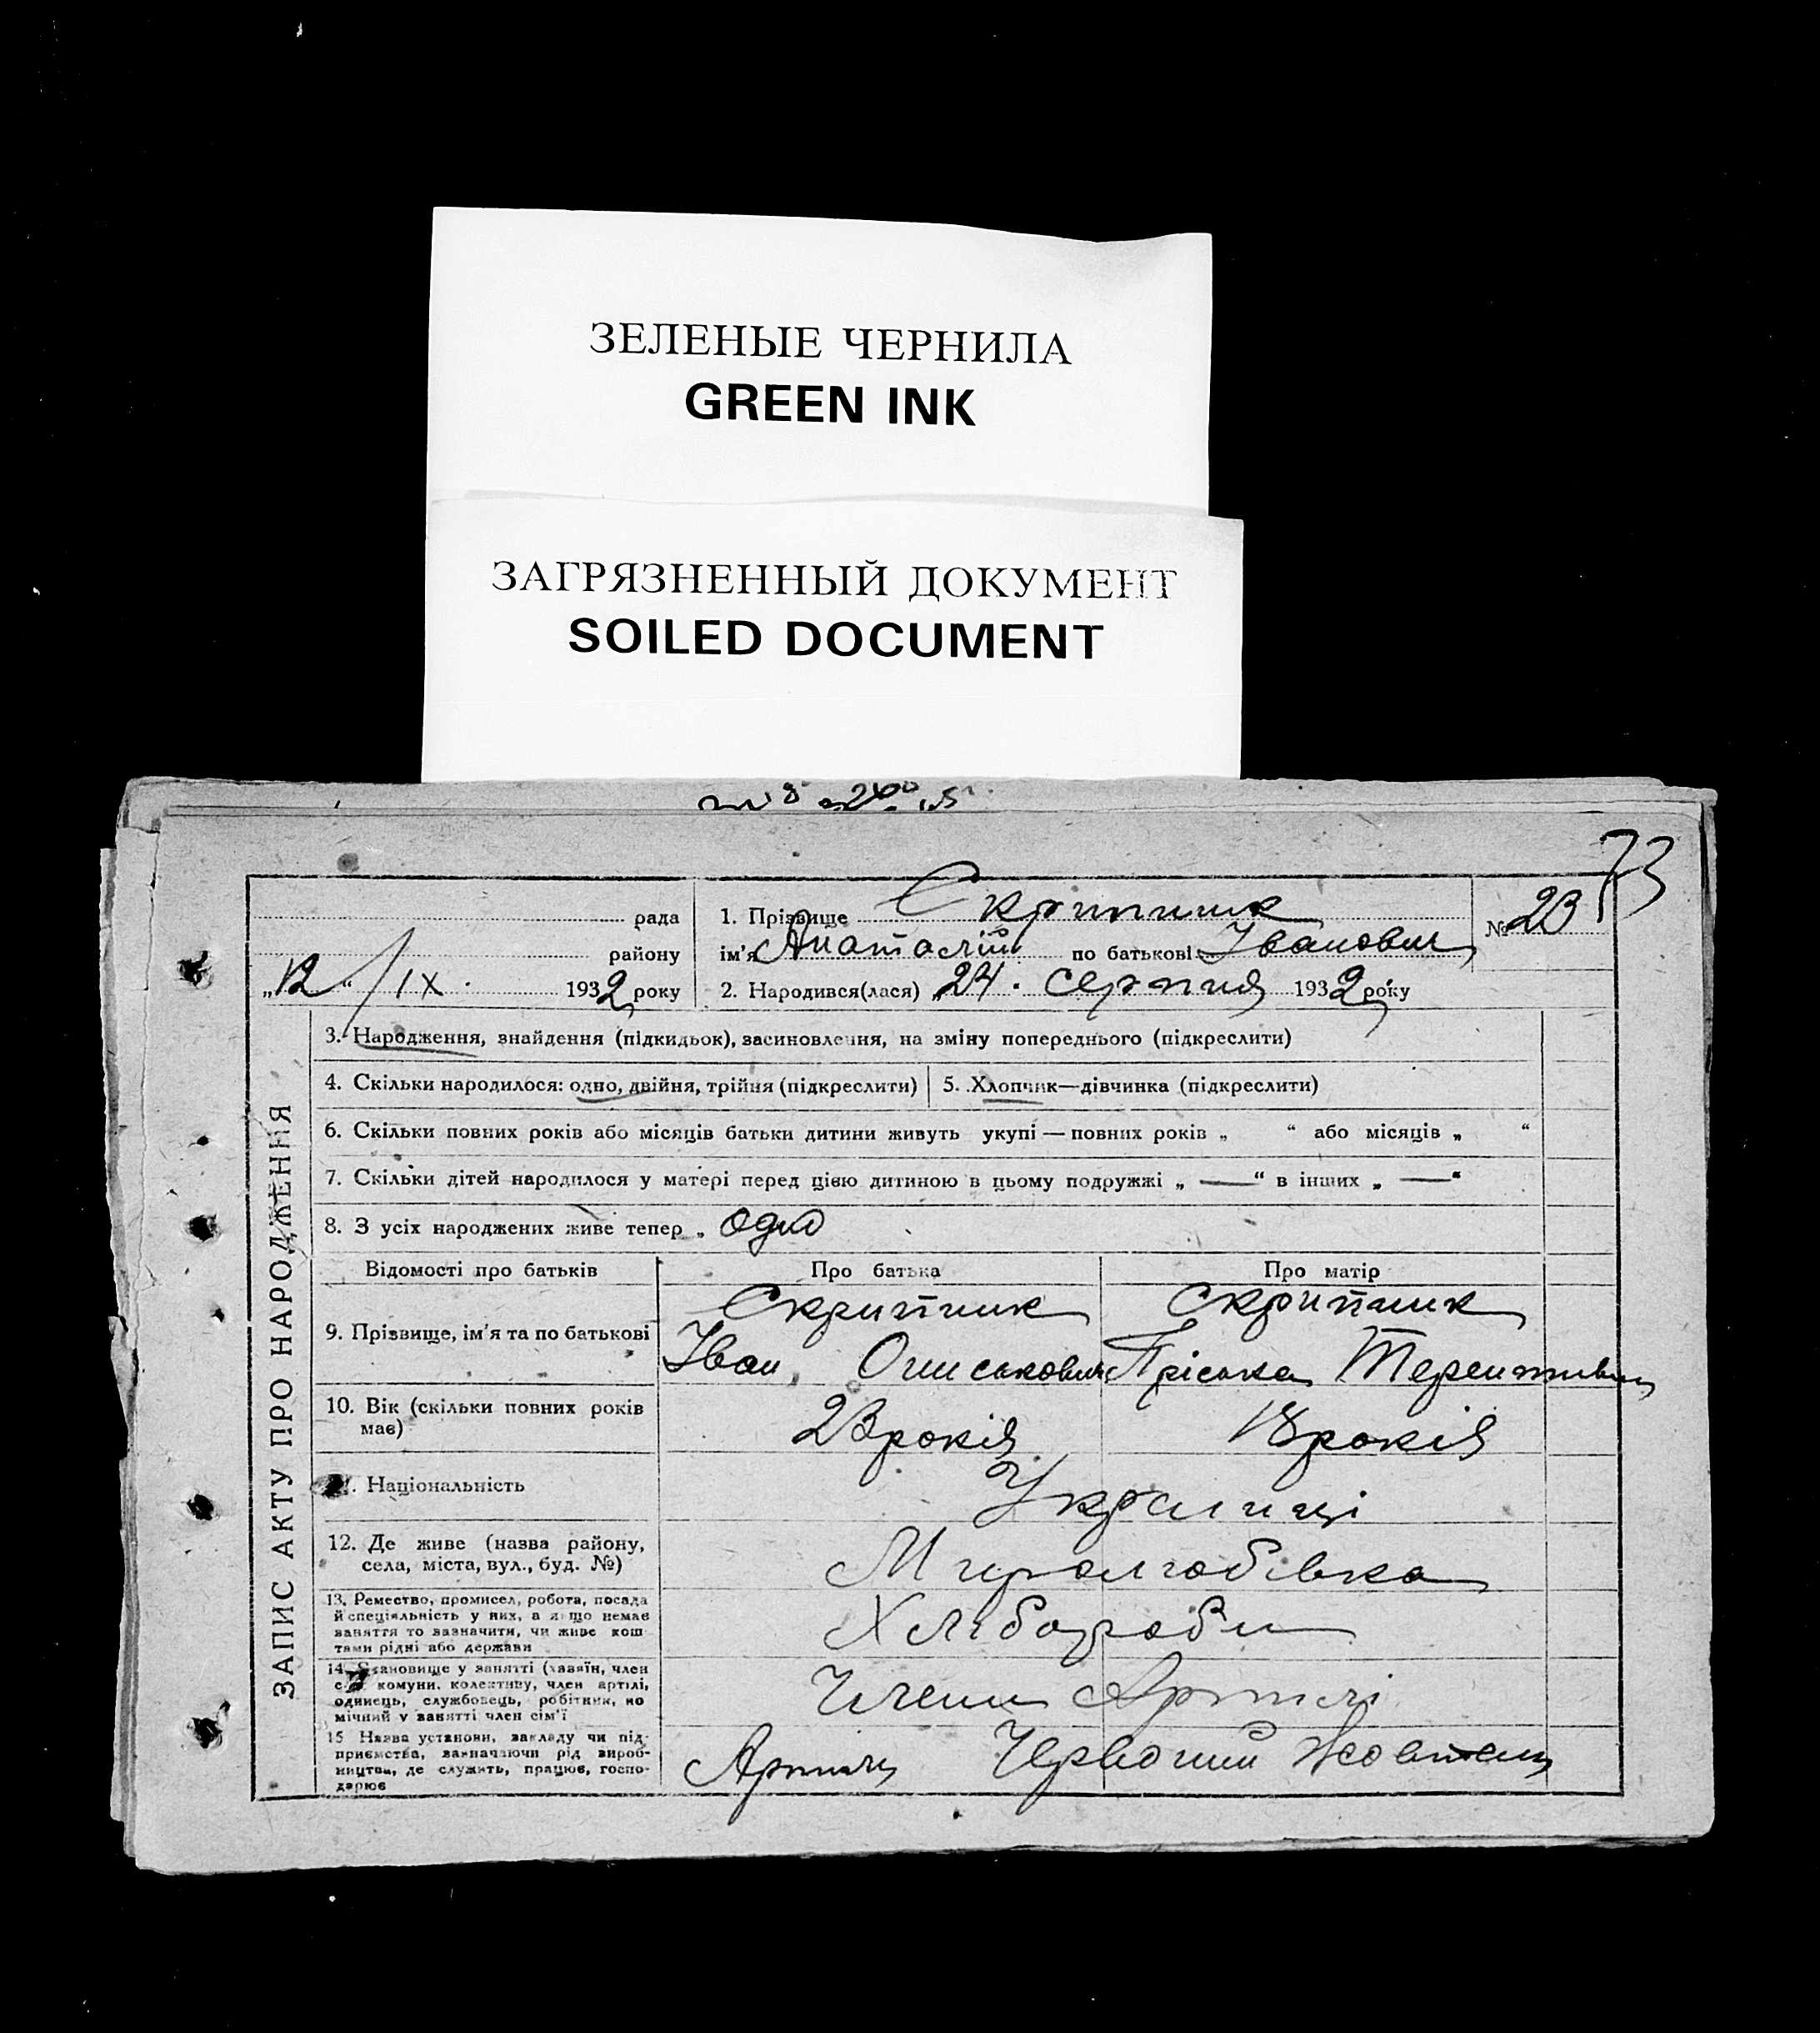 ЗЕЛЕНЫЕ ЧЕРНИЛА
GREEN INK
ЗАГРЯЗНЕННЫЙ ДОКУМЕНТ
SOILED DOCUMENT
73
рада
1. Прізвище Скрипник
№ 23
району
ім'я Анатолій по батькові Іванович
„12“/IX. 1932 року
2. Народився(лася) „24. серпня 1932 року
ЗАПИС АКТУ ПРО НАРОДЖЕННЯ
3. Народження, знайдення (підкидьок), засиновлення, на зміну попереднього (підкреслити)
4. Скільки народилося: одно, двійня, трійня (підкреслити)
5. Хлопчик—дівчинка (підкреслити)
6. Скільки повних років або місяців батьки дитини живуть укупі — повних років „ “ або місяців „ “
7. Скільки дітей народилося у матері перед цією дитиною в цьому подружжі „ — “ в інших „ — “
8. З усіх народжених живе тепер „ одно
Відомості про батьків
Про батька
Про матір
9. Прізвище, ім'я та по батькові
Скрипник
Іван Ониськович
Скрипник
Пріська
10. Вік (скільки повних років
має)
23 років
18 років
Національність
Українці
12. Де живе (назва району,
села, міста, вул., буд. №)
Миролюбівка
13. Ремество, промисел, робота, посада
й спеціяльність у них, а якщо немає
заняття то зазначити, чи живе кош
тами рідні або держави
Хлібороби
14. Становище у занятті (хазяїн, член
комуни, колективу, член артілі,
одинець, службовець, робітник, по
мічний у занятті член сім'ї
Члени Артілі
15 Назва установи, закладу чи під-
приємства, зазначаючи рід вироб-
ництва, де служить, працює, госпо-
дарює
Артіль Червоний Жовтень